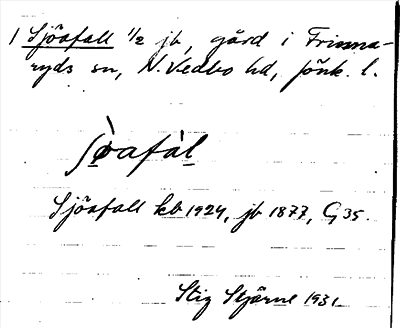 1 Sjöafall 1/2 jb, gård i Frinna-
ryds sn, N. Vedbo hd, Jönk. l.
ʃòafál
Sjöafall kb 1924, jb 1877, G 35.
Stig Stjärne 1931